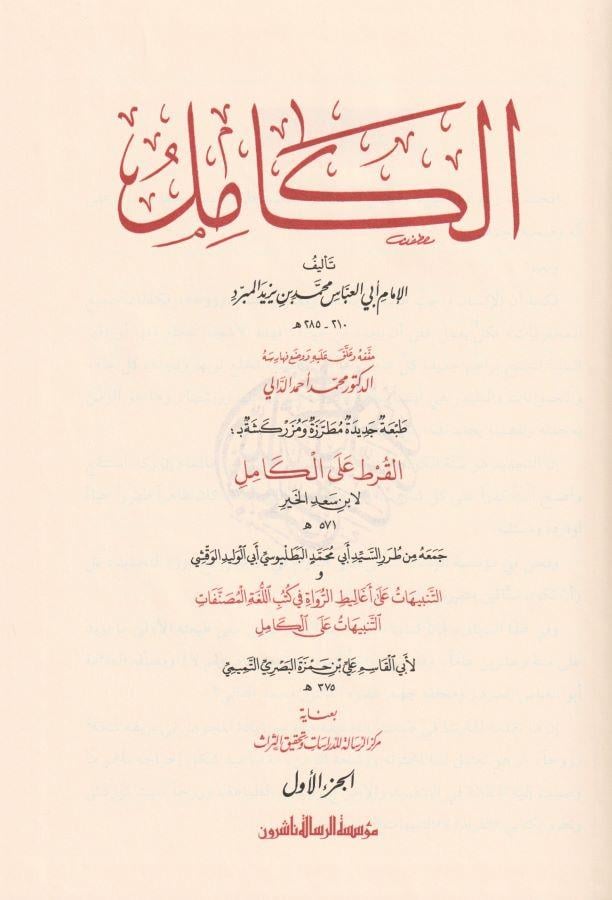 الكامل
مصطفى
تأليف
الإمام أبي العباس محمد بن يزيد المبرد
٢١٠ - ٢٨٥ هـ
حققه وعلق عليه ووضع فهارسه
الدكتور محمد أحمد الدالي
طبعة جديدة مطرزة ومزركشة بـ:
القرط على الكامل
لابن سعد الخير
٥٧١ هـ
جمعه من طرر السيد أبي محمد البطليوسي أبي الوليد الوقشي
و
التنبيهات على أغاليط الرواة في كتب اللغة المصنفات
التنبيهات على الكامل
لأبي القاسم علي بن حمزة البصري التميمي
٣٧٥ هـ
بعناية
مركز الرسالة للدراسات وتحقيق التراث
الجزء الأول
مؤسسة الرسالة ناشرون